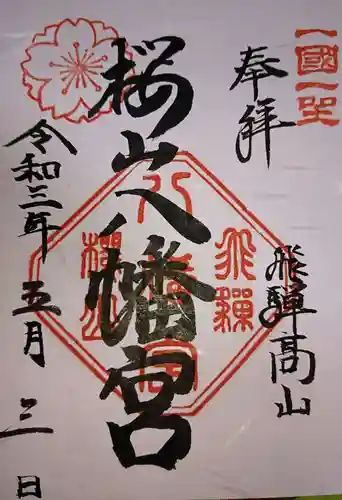 一國一宮
奉拝
飛騨高山
飛騨
八幡宮
櫻山
桜山八幡宮
令和三年五月三日